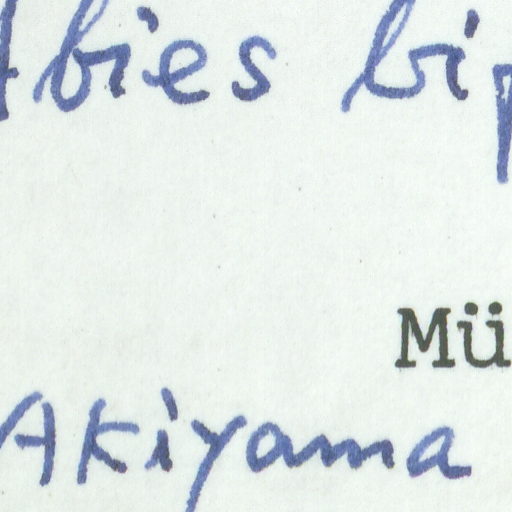 Abies bip
Mü
Akiyama